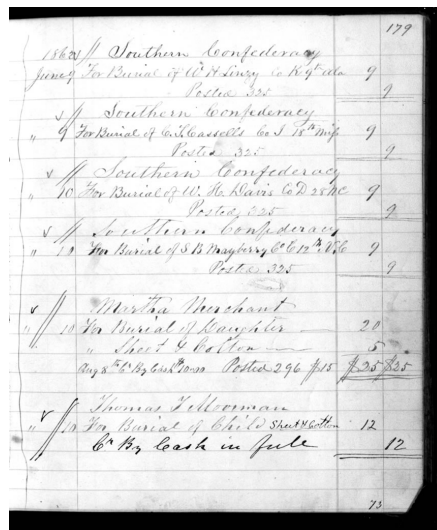 179
1862 // Southern Confederacy
June 9 For Burial of Wm H Linzy Co K 9th Ala 9
Posted 325 9
// Southern Confederacy
" 9 For Burial of C. T. Cassells Co I 18th Miss 9
Posted 325 9
// Southern Confederacy
" 10 For Burial of W. H. Davis Co D 28 NC 9
Posted 325 9
// Southern Confederacy
" 10 For Burial of S B Mayberry Co C 12th N.C 9
Posted 325 9
// Martha Merchant
" 10 For Burial of Daughter 20
" Sheet & Cotton 5
Aug 8th Cr By Cash 10.00 Posted 296 $15 $25 $25
// Thomas T Moorman
" 10 For Burial of Child Sheet & Cotton 12
Cr By Cash in full 12
73